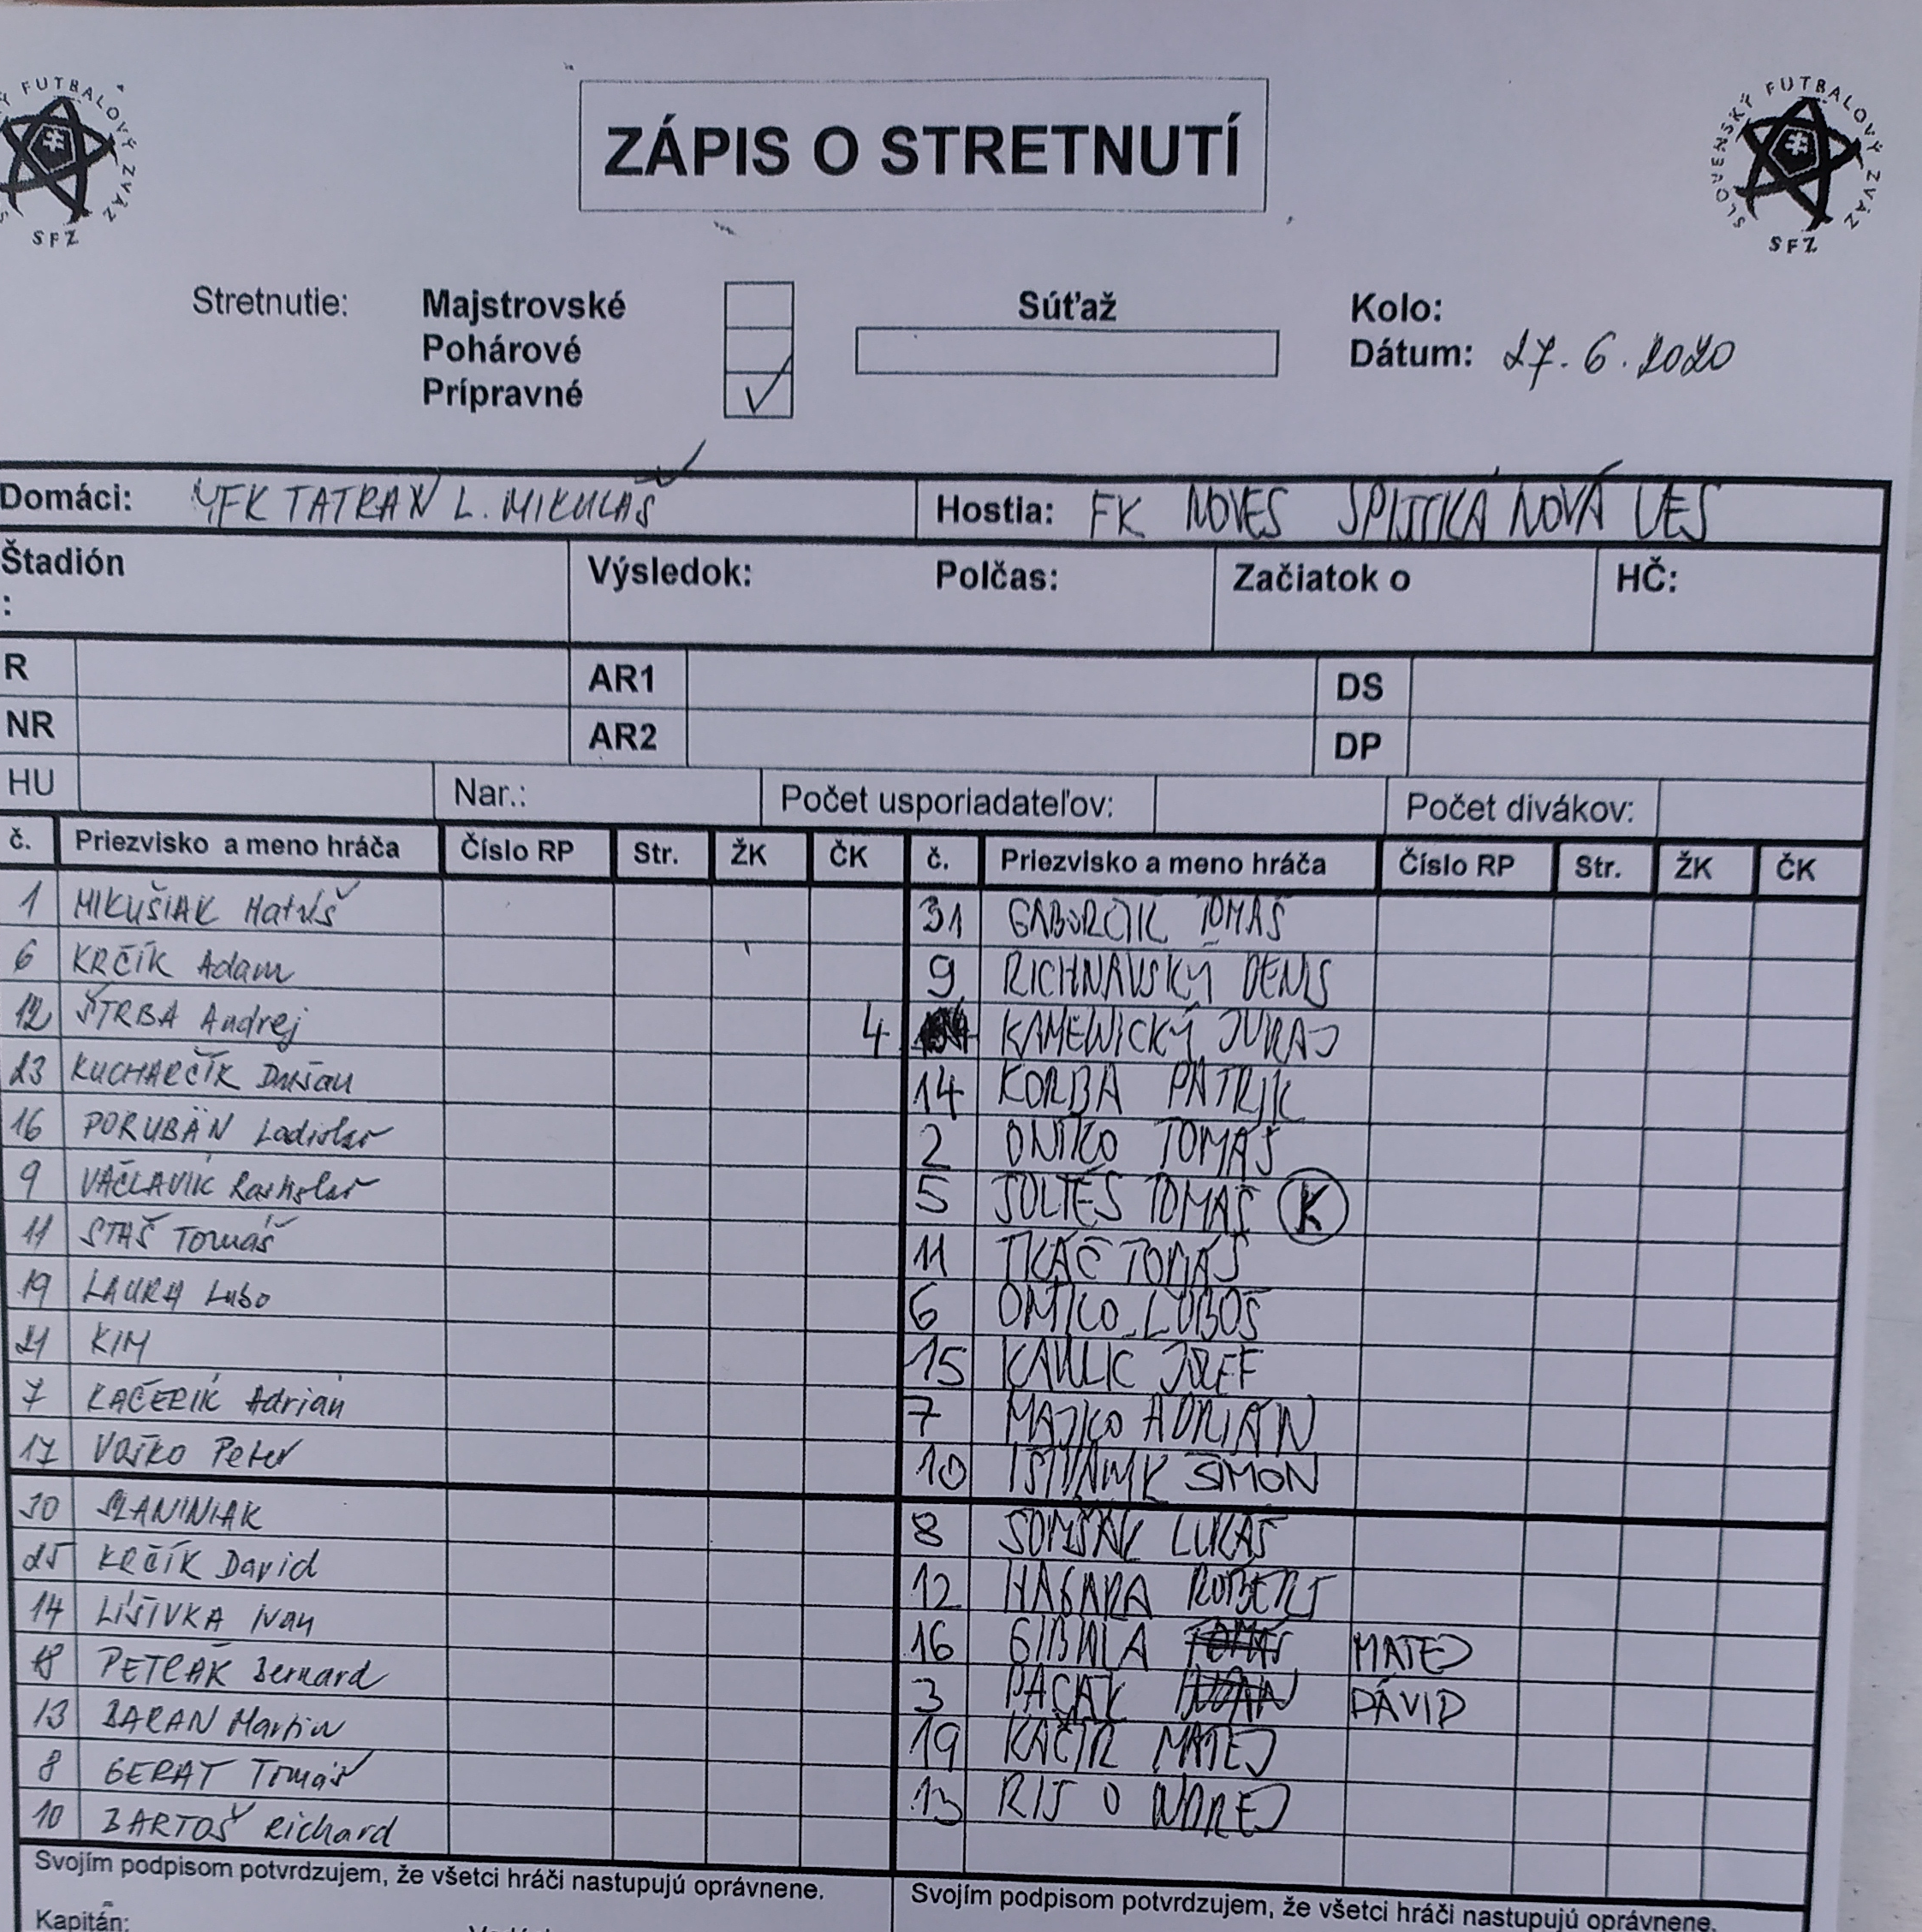 FUTBALOVÝ ZVÄZ
SFZ
ZÁPIS O STRETNUTÍ
SLOVENSKÝ FUTBALOVÝ ZVÄZ
SFZ
Stretnutie: Majstrovské Súťaž Kolo:
Pohárové Dátum: 27.6.2020
Prípravné ✓
Domáci: MFK TATRAN L. MIKULÁŠ Hostia: FK NOVES SPIŠSKÁ NOVÁ VES
Štadión : Výsledok: Polčas: Začiatok o HČ:
R AR1 DS
NR AR2 DP
HU Nar.: Počet usporiadateľov: Počet divákov:
č. Priezvisko a meno hráča Číslo RP Str. ŽK ČK č. Priezvisko a meno hráča Číslo RP Str. ŽK ČK
1 MIKUŠIAK Matúš 31 GABORČÍK TOMÁŠ
6 KRČÍK Adam 9 RICHNAVSKÝ DENIS
12 ŠTRBA Andrej 4 KAMENICKÝ JURAJ
23 KUCHARČÍK Dušan 14 KORBA PATRIK
16 PORUBÄN Ladislav 2 ONTKO TOMÁŠ
9 VÁCLAVIK Rastislav 5 ŠOLTÉS TOMÁŠ K
11 STAŠ Tomáš 11 TKÁČ TOMÁŠ
19 LAURA Lubo 6 ONTKO ĽUBOŠ
21 KIM 15 KAVULIČ JOZEF
7 KAČERIK Adrián 7 MAJKO ADRIÁN
17 VOŠKO Peter 10 IŠTVÁNIK ŠIMON
30 SLANINIAK 8 SOMŠÁK LUKÁŠ
25 KRČÍK David 12 HAGARA ROBERT
14 LIŠIVKA Ivan 16 GIBALA MATEJ
18 PETRÁK Bernard 3 PACÁK DÁVID
13 BARAN Martin 19 KAČÍR MATEJ
8 GERÁT Tomáš 13 RIŠ ONDREJ
10 BARTOŠ Richard
Svojím podpisom potvrdzujem, že všetci hráči nastupujú oprávnene. Svojím podpisom potvrdzujem, že všetci hráči nastupujú oprávnene.
Kapitán: